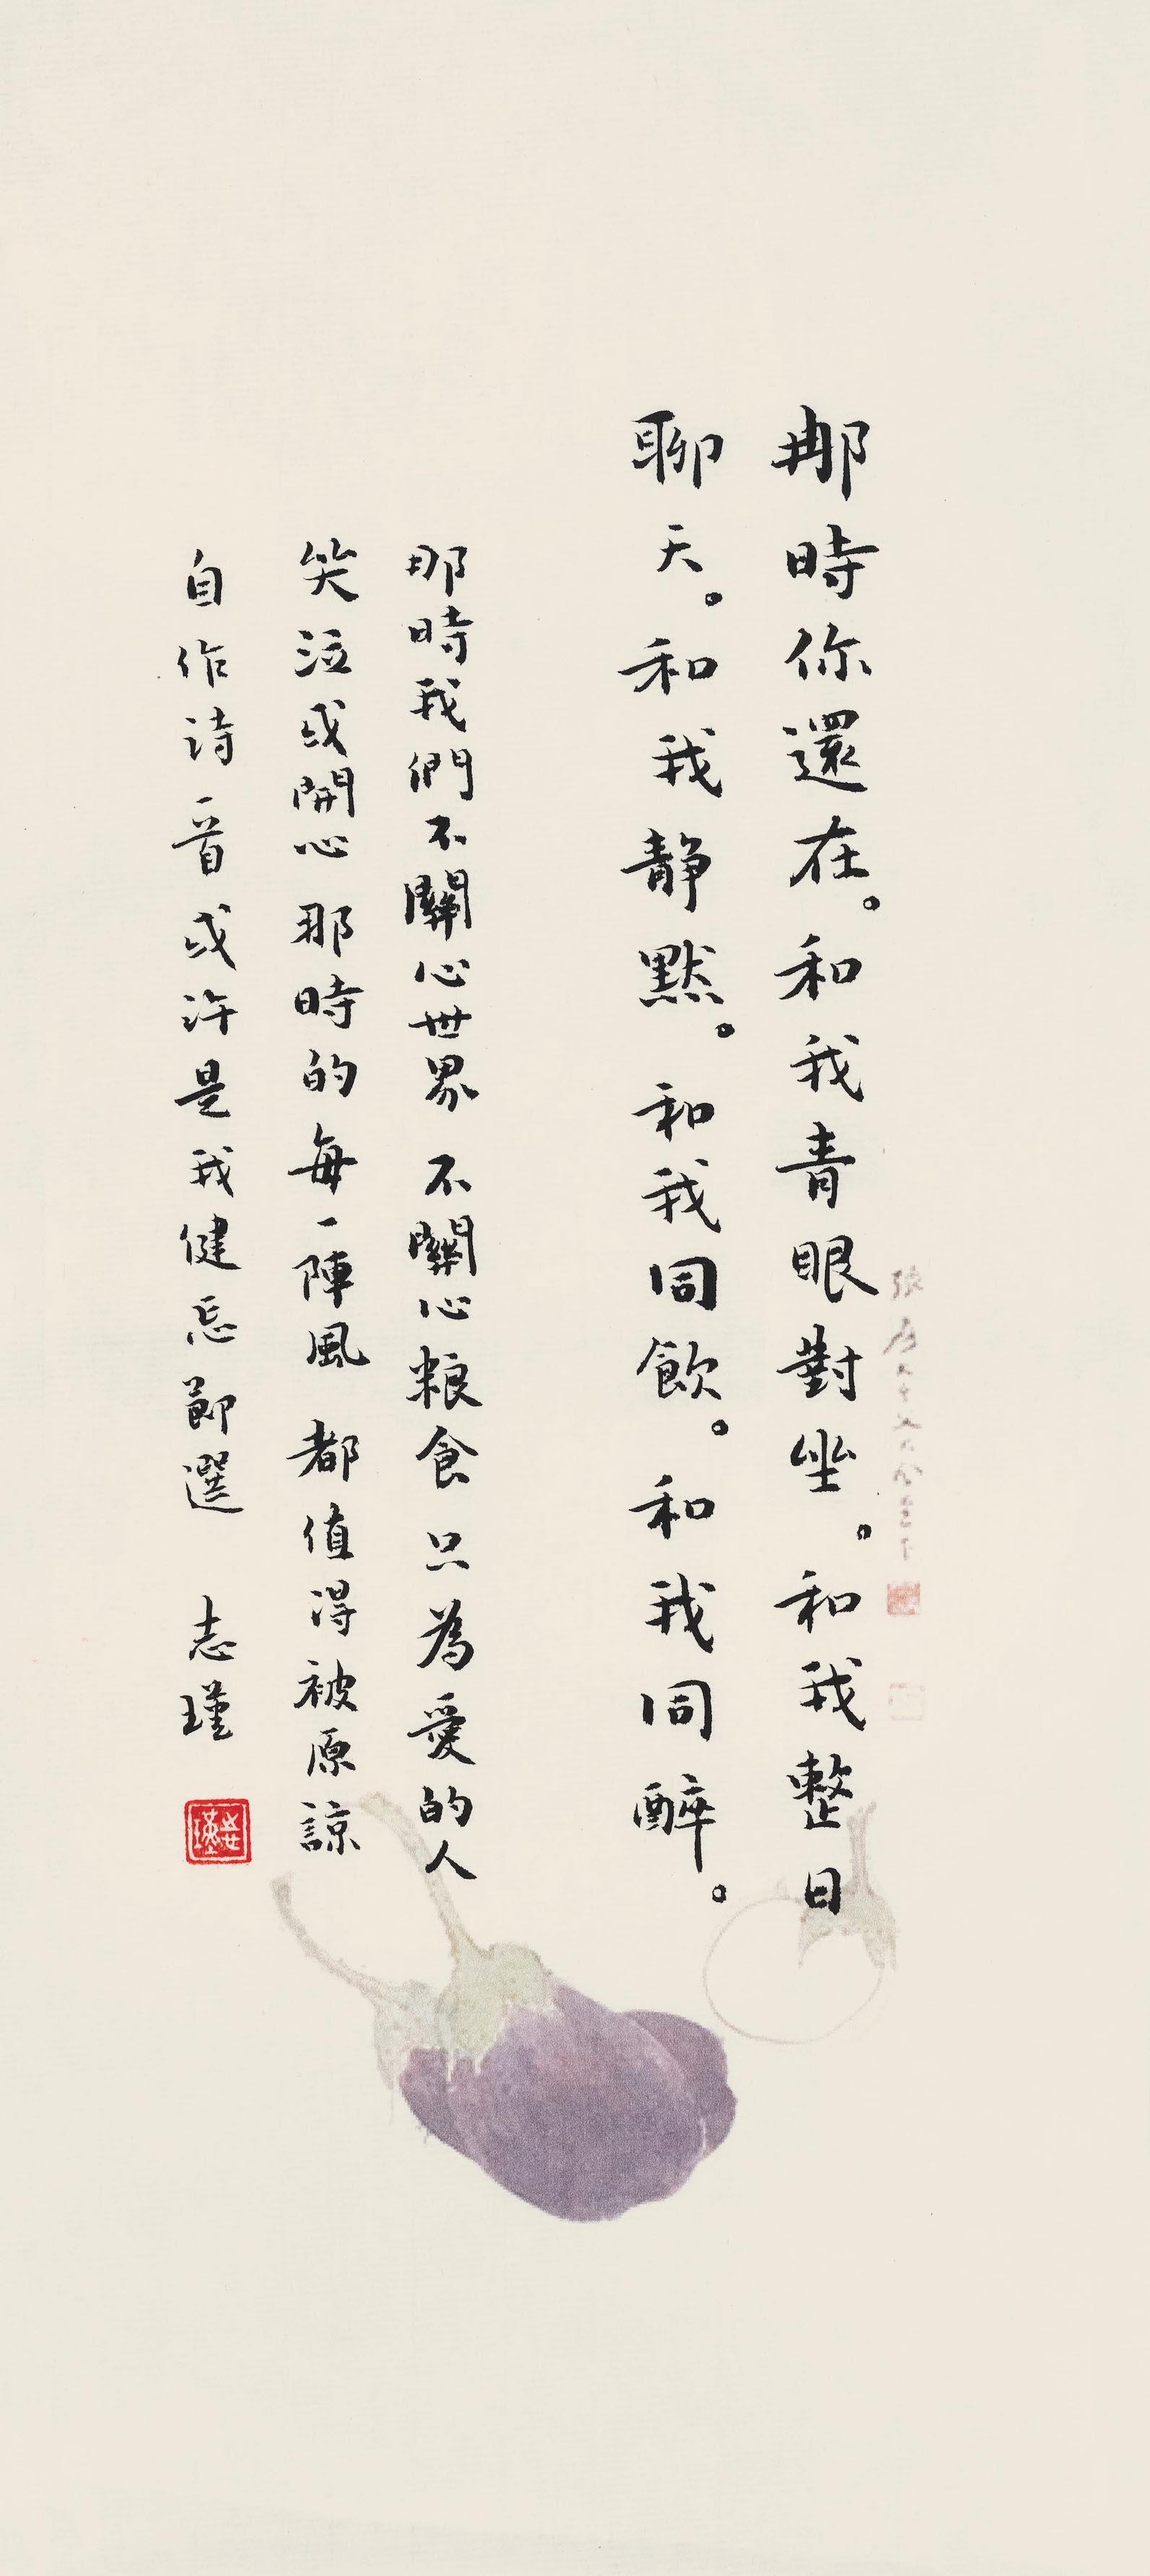 那時你還在。和我青眼對坐。和我整日
聊天。和我静默。和我同飲。和我同醉。
那時我們不關心世界 不關心粮食 只為愛的人
笑泣或開心 那時的每一陣風 都值得被原諒
自作诗一首或许是我健忘節選 志瑾